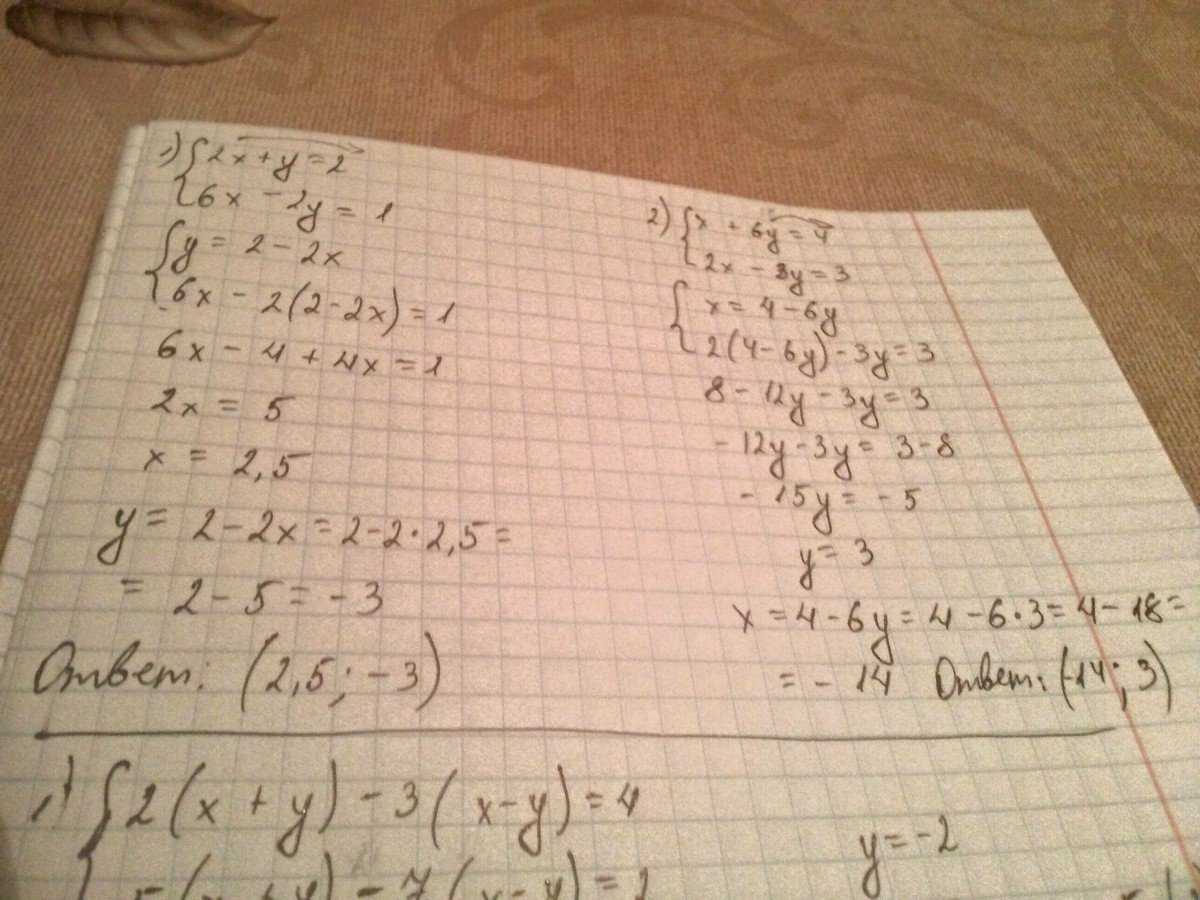 1) 2x + y = 2
6x - 2y = 1
y = 2 - 2x
6x - 2(2-2x) = 1
6x - 4 + 4x = 1
2x = 5
x = 2,5
y = 2 - 2x = 2-2·2,5 =
= 2 - 5 = -3
Ответ: (2,5; -3)
2) x + 6y = 4
2x - 3y = 3
x = 4 - 6y
2(4-6y) - 3y = 3
8 - 12y - 3y = 3
- 12y - 3y = 3 - 8
- 15y = - 5
y = 3
x = 4 - 6y = 4 - 6·3 = 4 - 18 =
= - 14 Ответ: (-14; 3)
1) 2(x + y) - 3(x-y) = 4
y = -2